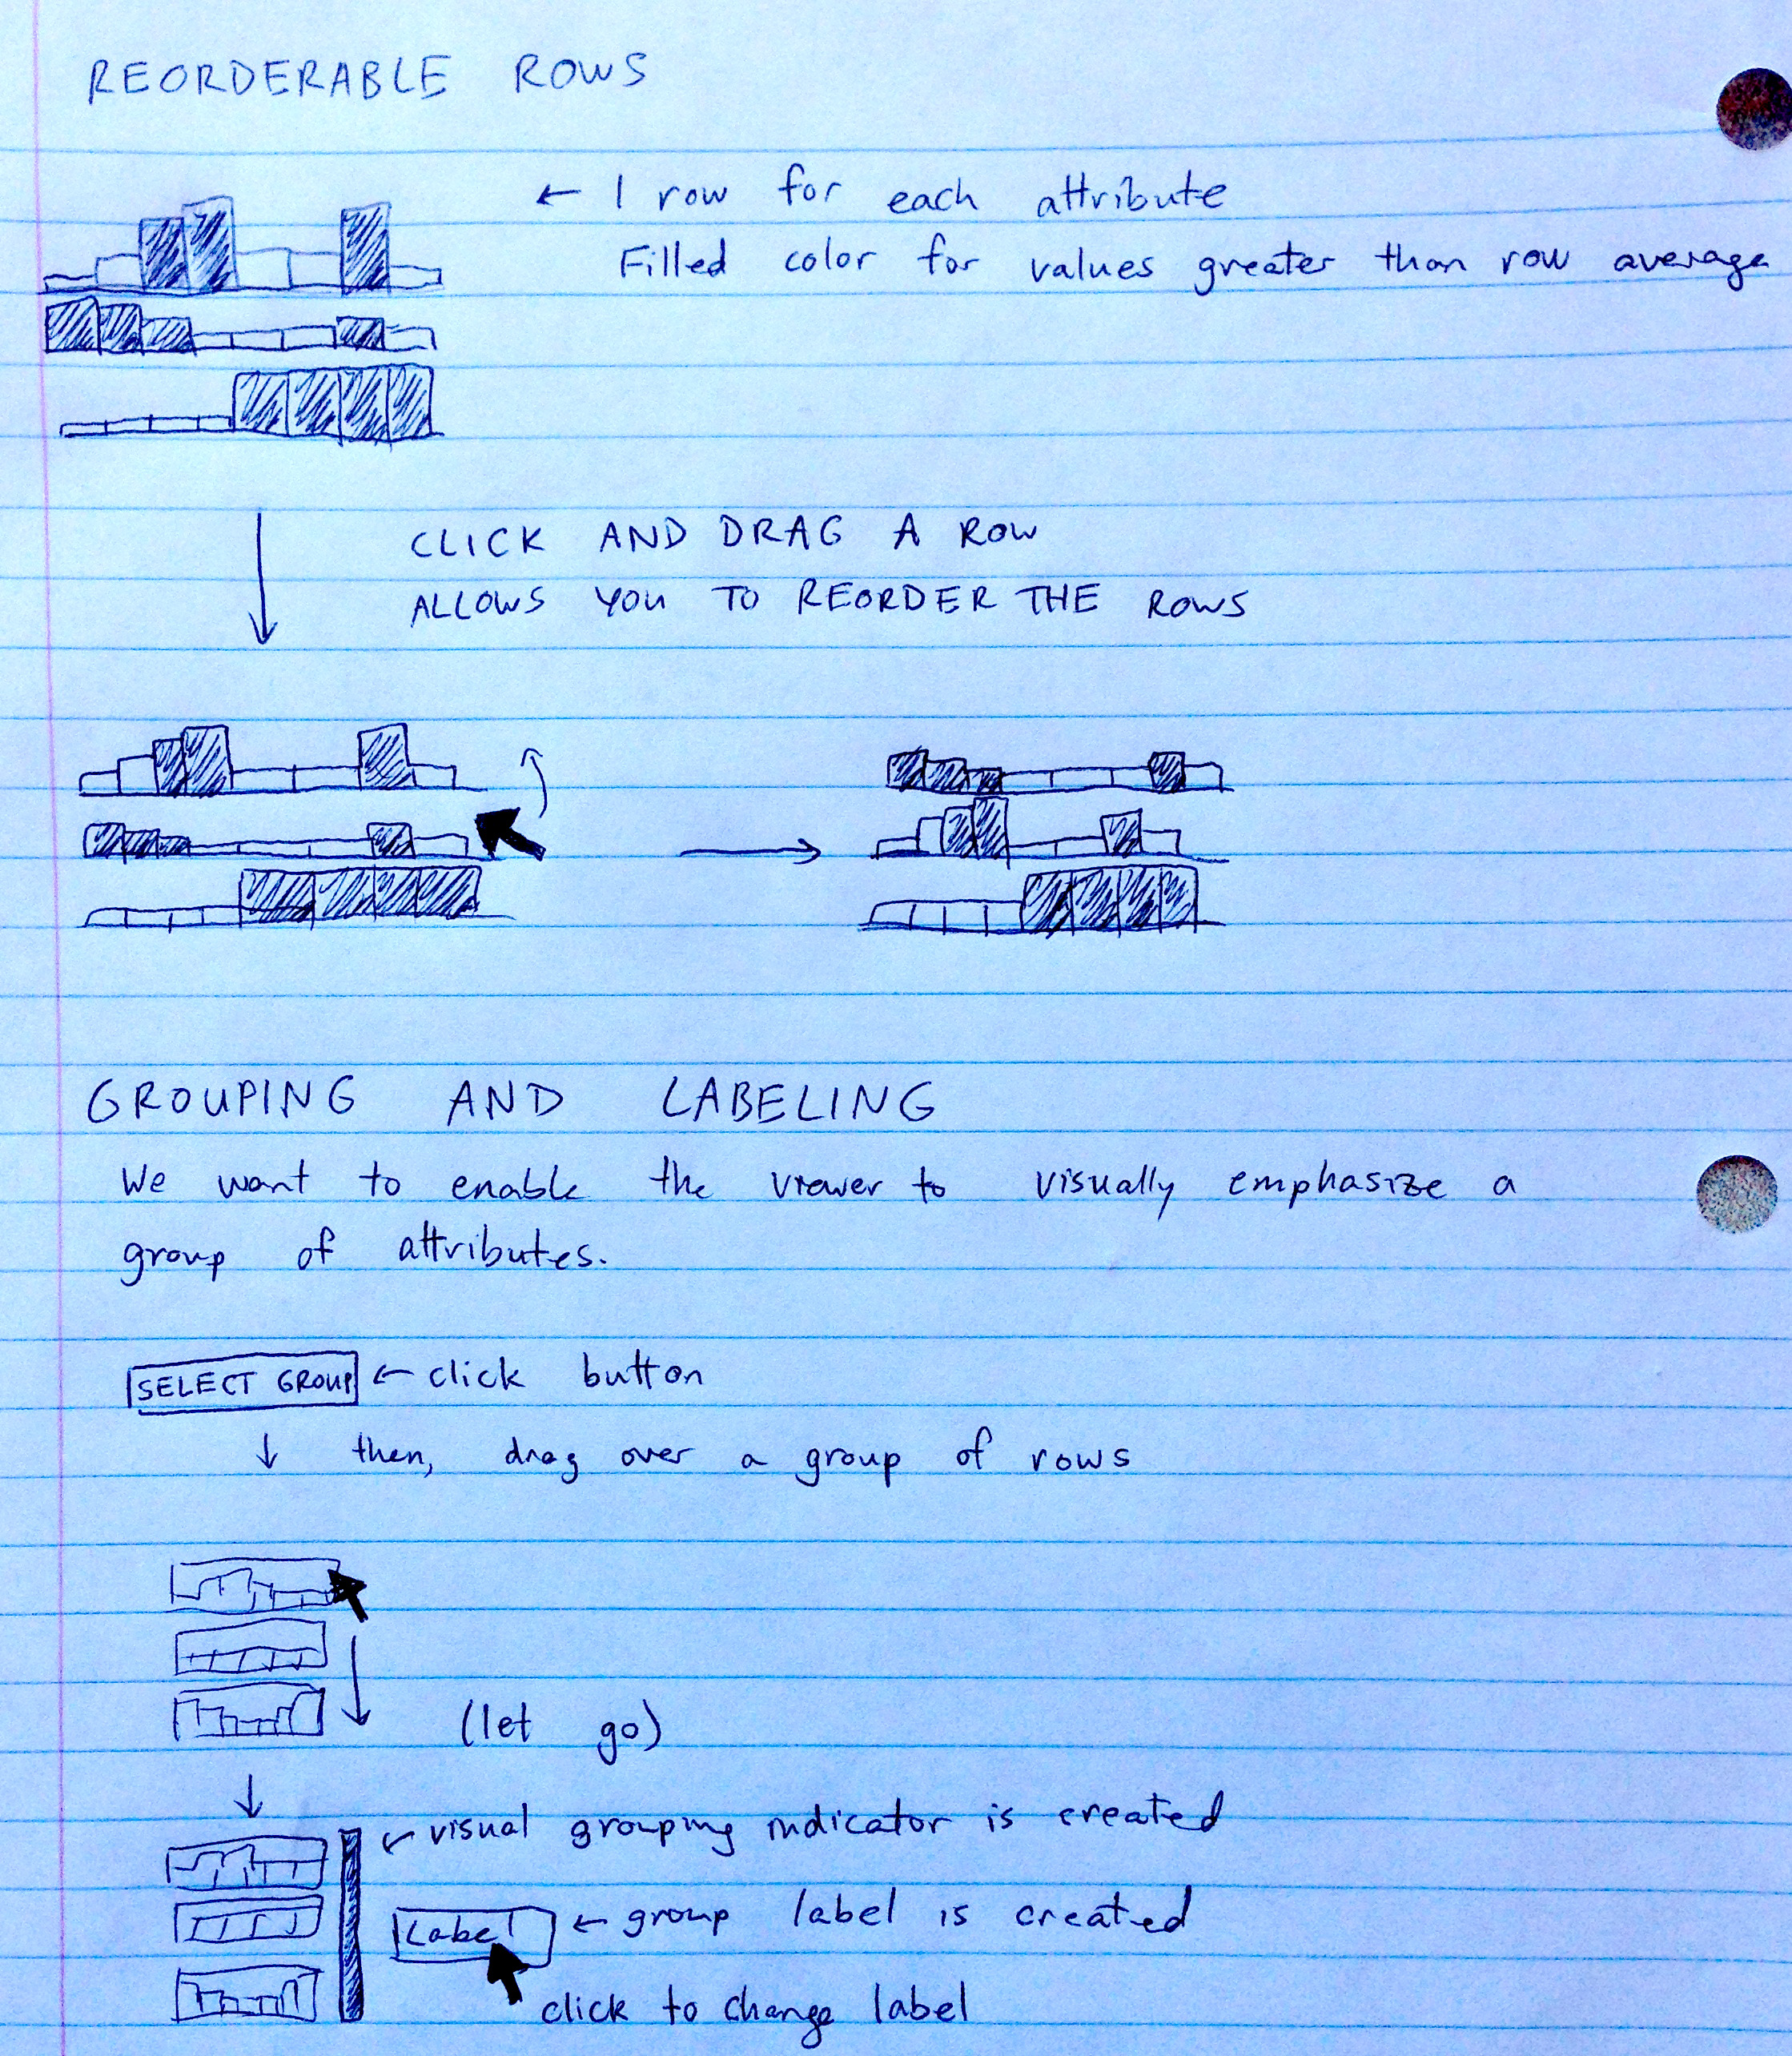 REORDERABLE ROWS
← 1 row for each attribute
Filled color for values greater than row average
CLICK AND DRAG A ROW
ALLOWS YOU TO REORDER THE ROWS
GROUPING AND LABELING
We want to enable the viewer to visually emphasize a
group of attributes.
SELECT GROUP ← click button
↓ then, drag over a group of rows
(let go)
visual grouping indicator is created
Label ← group label is created
click to change label